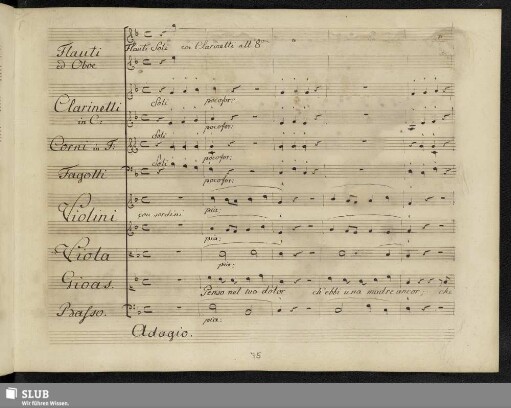 Flauti
ed Oboe
Flauti Soli con Clarinetti all 8
Clarinetti
in C:
Soli
pocofor:
Soli
pocofor:
Corni in F:
Soli
pocofor:
Fagotti
pocofor:
Violini
con sordini
pia:
pia:
Viola
pia:
Gioas.
Penso nel tuo dolor ch'ebbi una madre ancor; che
Basso.
pia:
Adagio.
75
SLUB
Wir führen Wissen.